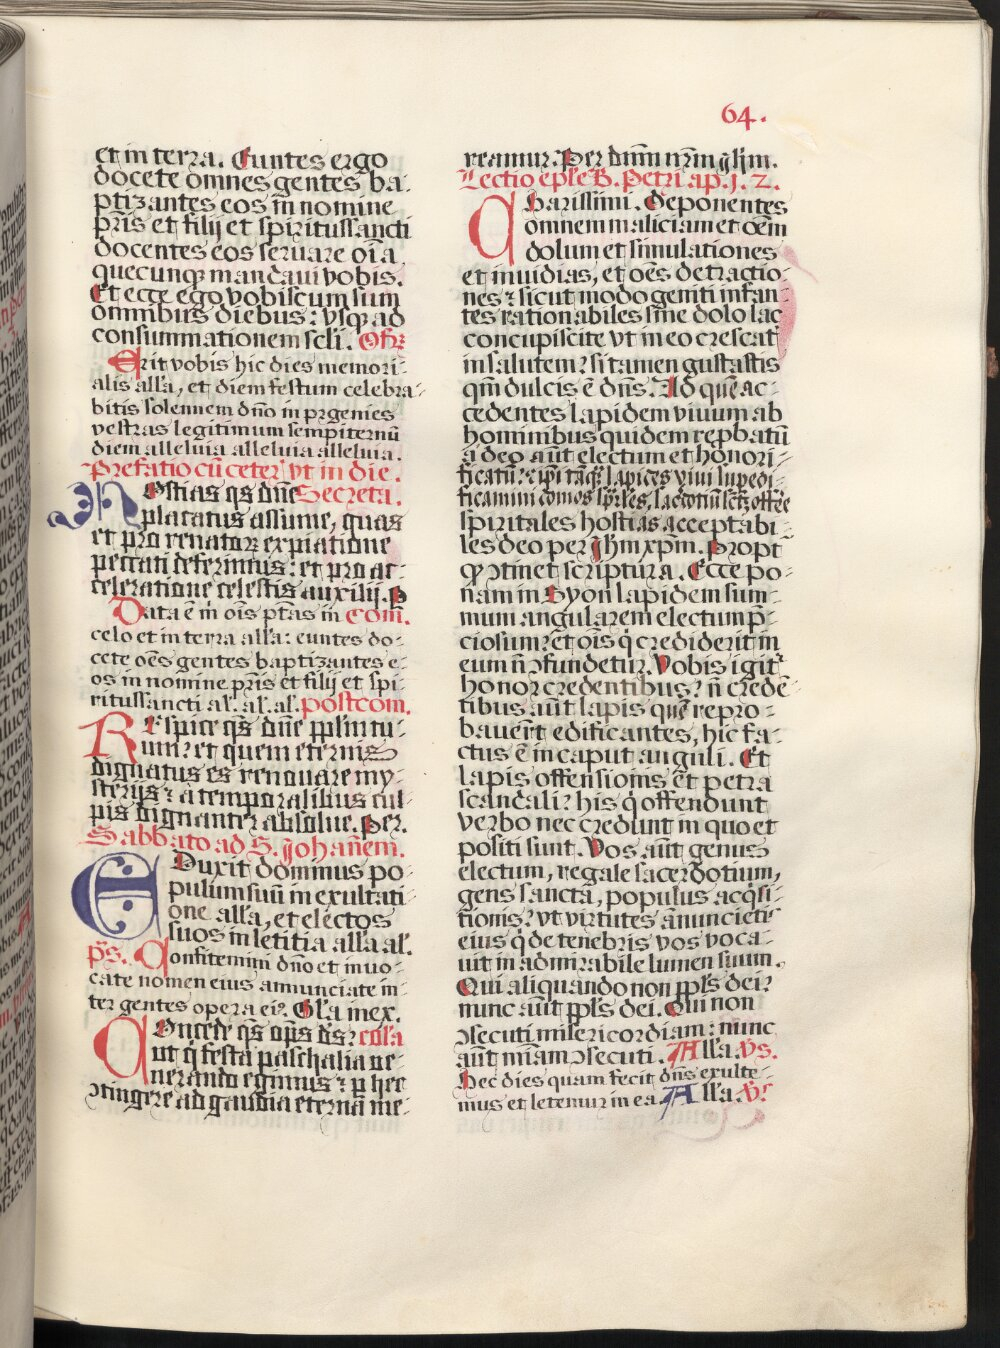 64.
et in terra. Euntes ergo
docete omnes gentes ba-
ptizantes eos in nomine
pr̃is et filij et spiritussancti
docentes eos seruare oı̃a
quecunqꝫ mandaui vobis.
Et ecce ego vobiscum sum
omnibus diebus: vsqꝫ ad
consummationem scl̃i. Ofr̃
Erit vobis hic dies memori-
alis alĩa, et diem festum celebra-
bitis solennem dño in prgenies
vestras legitimum sempiternũ
diem alleluia alleluia alleluia.
Prefatio cũ ceter' vt in die.
Hostias qs dñe Secreta.
placatus assume, quas
et pro renatoꝝ expiatione
peccati deferimus: et pro ac-
celeratione celestis auxilij. P
Data ẽ m̃ oı̃s ptãs in Com̃.
celo et in terra alľa: euntes do-
cete oẽs gentes baptizantes e-
os in nomine pr̃is et filij et spi-
ritussancti al'. al'. al'. postcom.
Respice qs̃ dñe pplm tu-
um: et quem eternis
dignatus es renouare my-
sterijs: a temporalibus cul-
pis dignanter absolue. Per.
Sabbato ad S. Johañem.
Eduxit dominus po-
pulum suũ in exultati-
one alľa, et electos
suos in letitia alľa al'.
p̃s. Confitemini dño et inuo-
cate nomen eius annunciate in-
ter gentes opera eiꝰ. Gľa mex.
Concede qs̃ oṕs ds̃: coľa
ut q̇ festa paschalia ue-
nerando egimus: p hec
ↄtingere ad gaudia eternã me-
reamur. Per dñm nr̃m ıḣm.
Lectio epľe B. Petri ap. j. 2.
Charissimi. Deponentes
omnem maliciam et oẽm
dolum et simulationes
et inuidias, et oẽs detractio-
nes: sicut modo geniti infan-
tes rationabiles sine dolo lac
concupiscite vt in eo crescat̃
in salutem: si tamen gustastis
qm̃ dulcis ẽ dñs. Ad quẽ ac-
cedentes lapidem viuum ab
hominibus quidem repbatũ
a deo aũt electum et honori-
ficatũ: et ipi tãqꝫ lapides viui supedi-
ficamini domos spr̃les, sacdotiũ sctꝫ offẽe
spiritales hostias acceptabi-
les deo per Ihm xp̃m. Propt̃
qꝫ ↄtinet scriptura. Ecce po-
nam in Syon lapidem sum-
mum angularem electum p̃-
ciosum: et oı̃s q̇ crediderit in
eum ñ ↄfundetur. Vobis igit̃
honor credentibus: ñ credẽ-
tibus aũt lapis quẽ repro-
bauer̃t edificantes, hic fa-
ctus ẽ in caput anguli. Et
lapis offensionis et petra
scandali: his q̇ offendunt
verbo nec credunt in quo et
positi sunt. Vos aũt genus
electum, regale sacerdotium,
gens sanctã, populus acq̇si-
tionis: vt virtutes ãnuncietis
eius q̇ de tenebris vos voca-
uit in admirabile lumen suum.
Qui aliquando non ppľs dei:
nunc aũt ppľs dei. Qui non
ↄsecuti misericordiam: nunc
aũt mı̃am ↄsecuti. Alľa. Vs.
Hec dies quam fecit dñs exulte-
mus et letemur in ea. Alľa. Vs